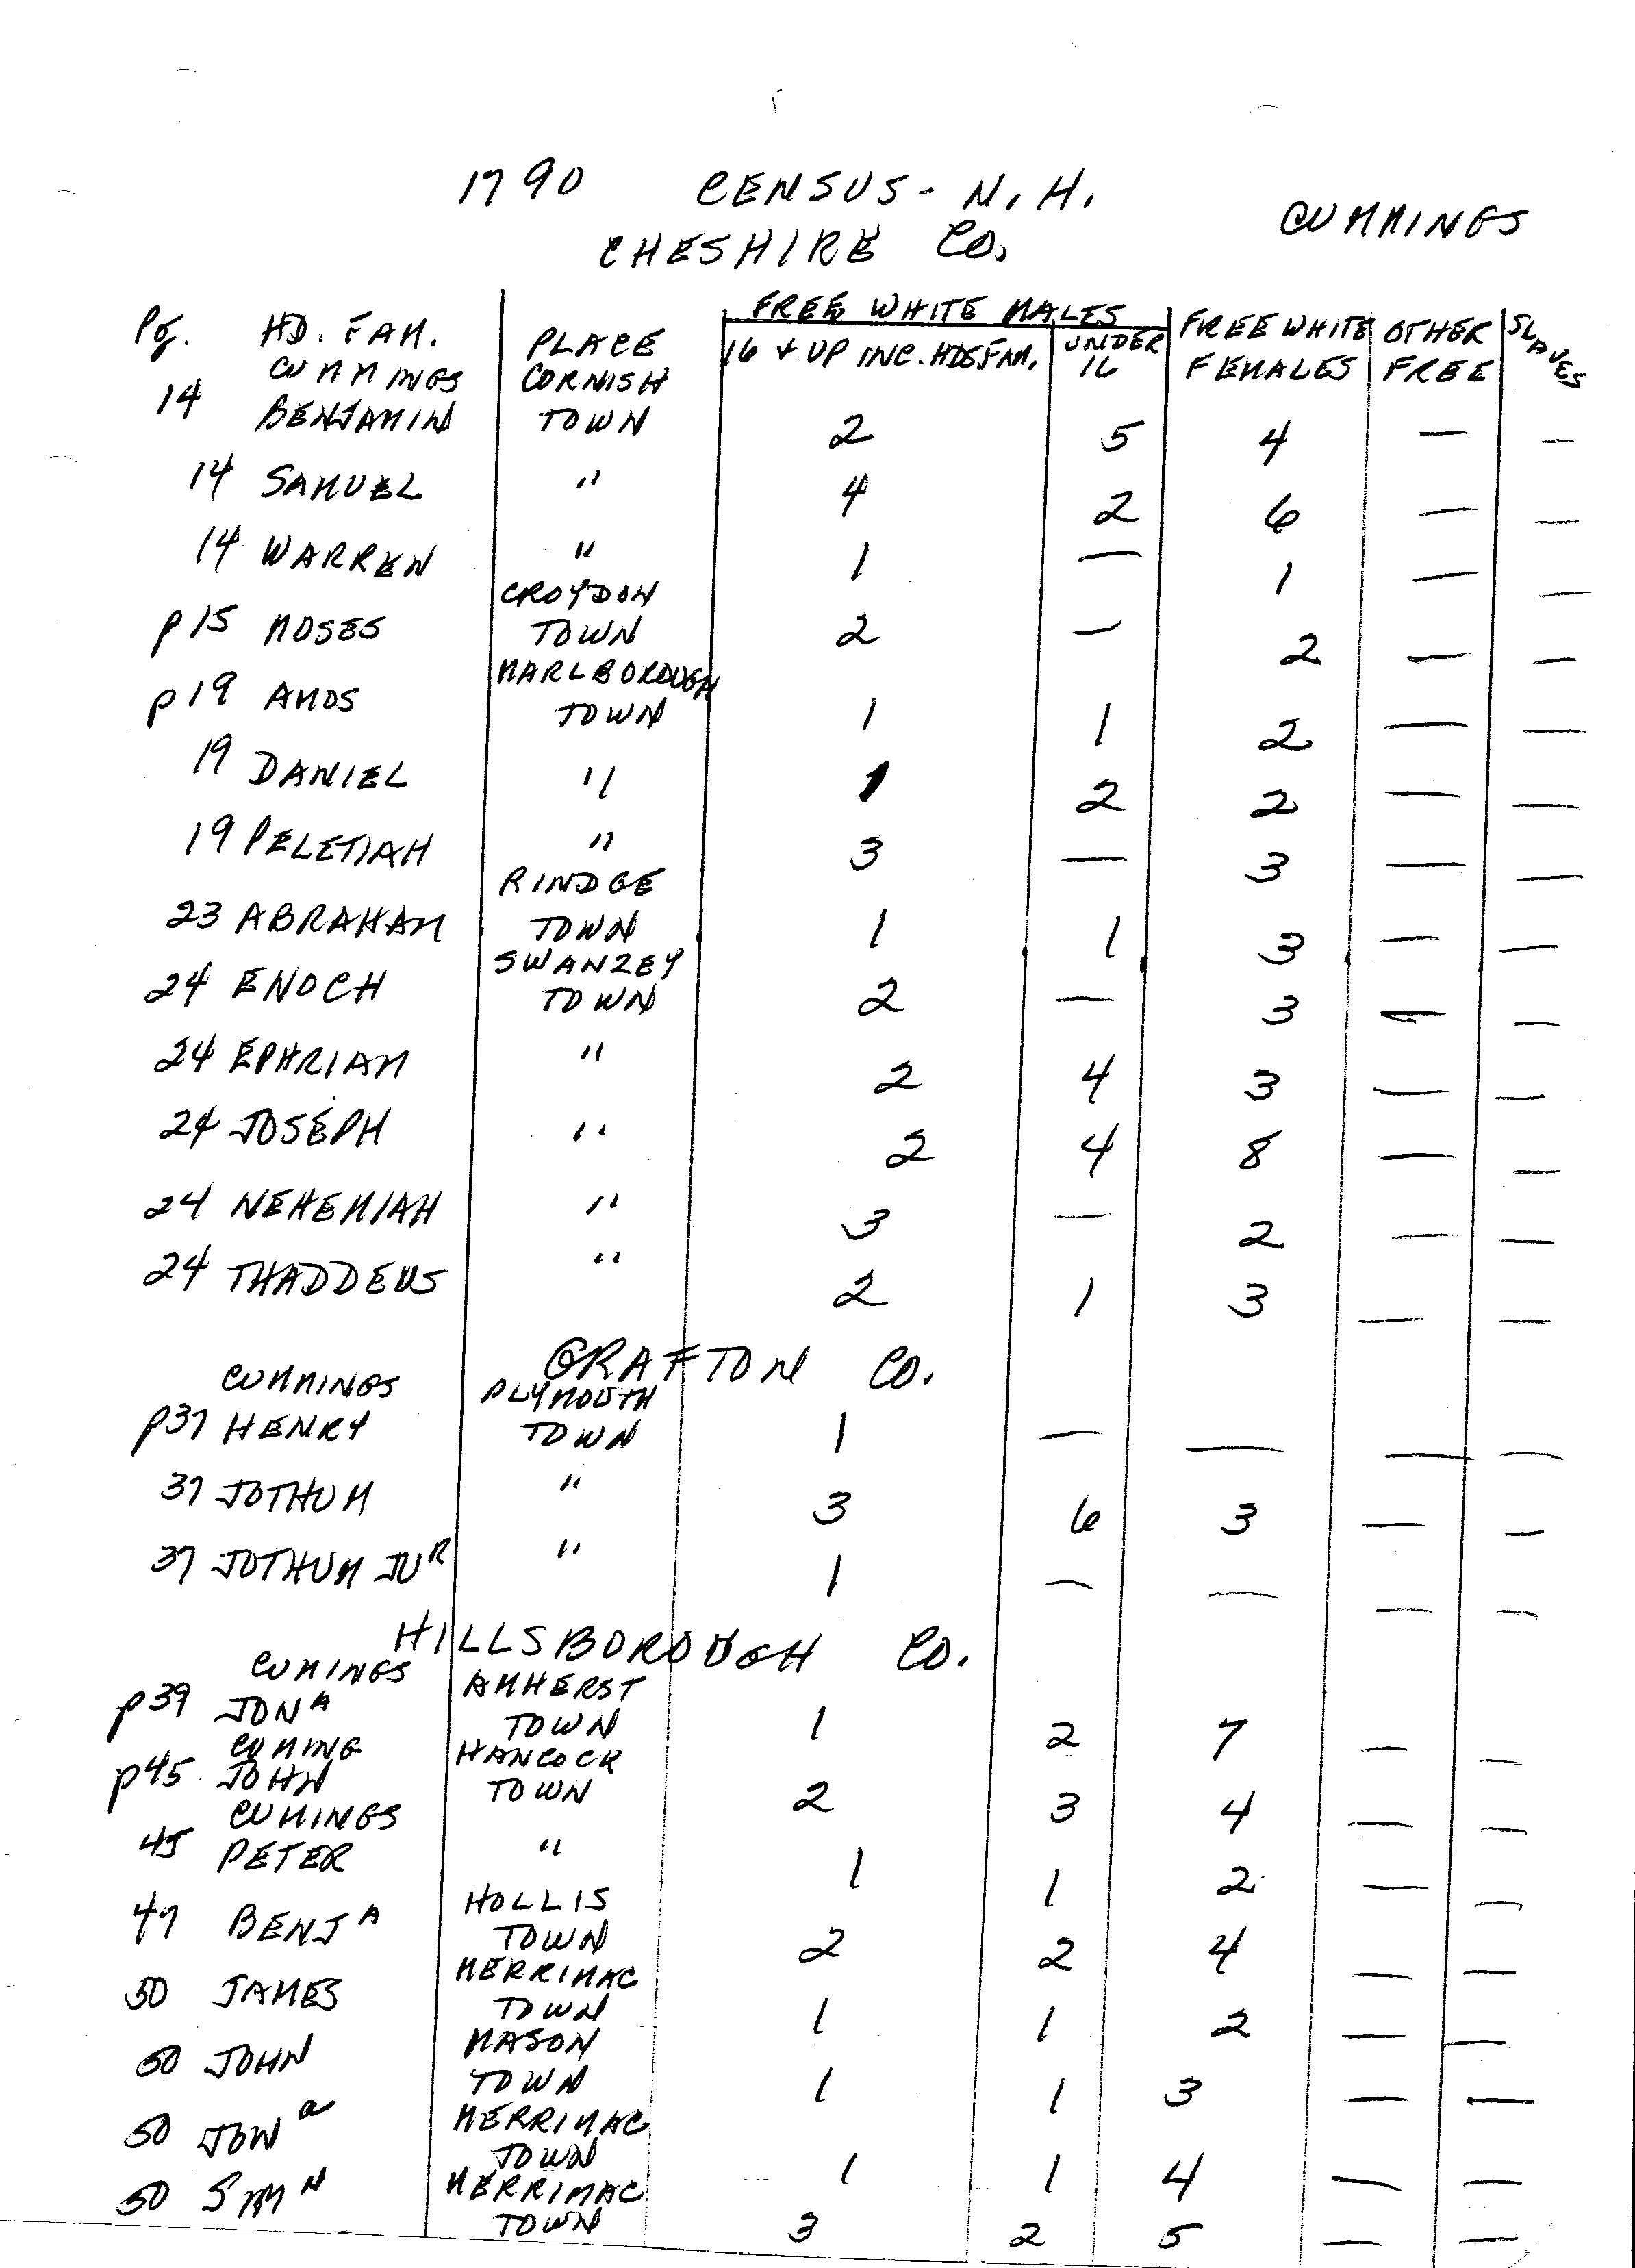 1790 CENSUS - N.H.
CUMMINGS
CHESHIRE CO.
FREE WHITE MALES
Pg. HD. FAM. PLACE 16 & UP INC. HDS FAM. UNDER 16 FREE WHITE FEMALES OTHER FREE SLAVES
CUMMINGS CORNISH
14 BENJAMIN TOWN 2 5 4 — —
14 SAMUEL " 4 2 6 — —
14 WARREN " 1 — 1 — —
CROYDON
p 15 MOSES TOWN 2 — 2 — —
MARLBOROUGH
p 19 AMOS TOWN 1 1 2 — —
19 DANIEL " 1 2 2 — —
19 PELETIAH " 3 — 3 — —
RINDGE
23 ABRAHAM TOWN 1 1 3 — —
SWANZEY
24 ENOCH TOWN 2 — 3 — —
24 EPHRIAM " 2 4 3 — —
24 JOSEPH " 2 4 8 — —
24 NEHEMIAH " 3 — 2 — —
24 THADDEUS " 2 1 3 — —
GRAFTON CO.
CUMMINGS PLYMOUTH
p37 HENRY TOWN 1 — — — —
37 JOTHUM " 3 6 3 — —
37 JOTHUM JUR " 1 — — — —
HILLSBOROUGH CO.
CUMINGS AMHERST
p39 JONA TOWN 1 2 7 — —
CUMING HANCOCK
p45 JOHN TOWN 2 3 4 — —
CUMINGS
45 PETER " 1 1 2 — —
HOLLIS
47 BENJA TOWN 2 2 4 — —
MERRIMAC
50 JAMES TOWN 1 1 2 — —
MASON
50 JOHN TOWN 1 1 3 — —
MERRIMAC
50 JONa TOWN 1 1 4 — —
MERRIMAC
50 SIMN TOWN 3 2 5 — —